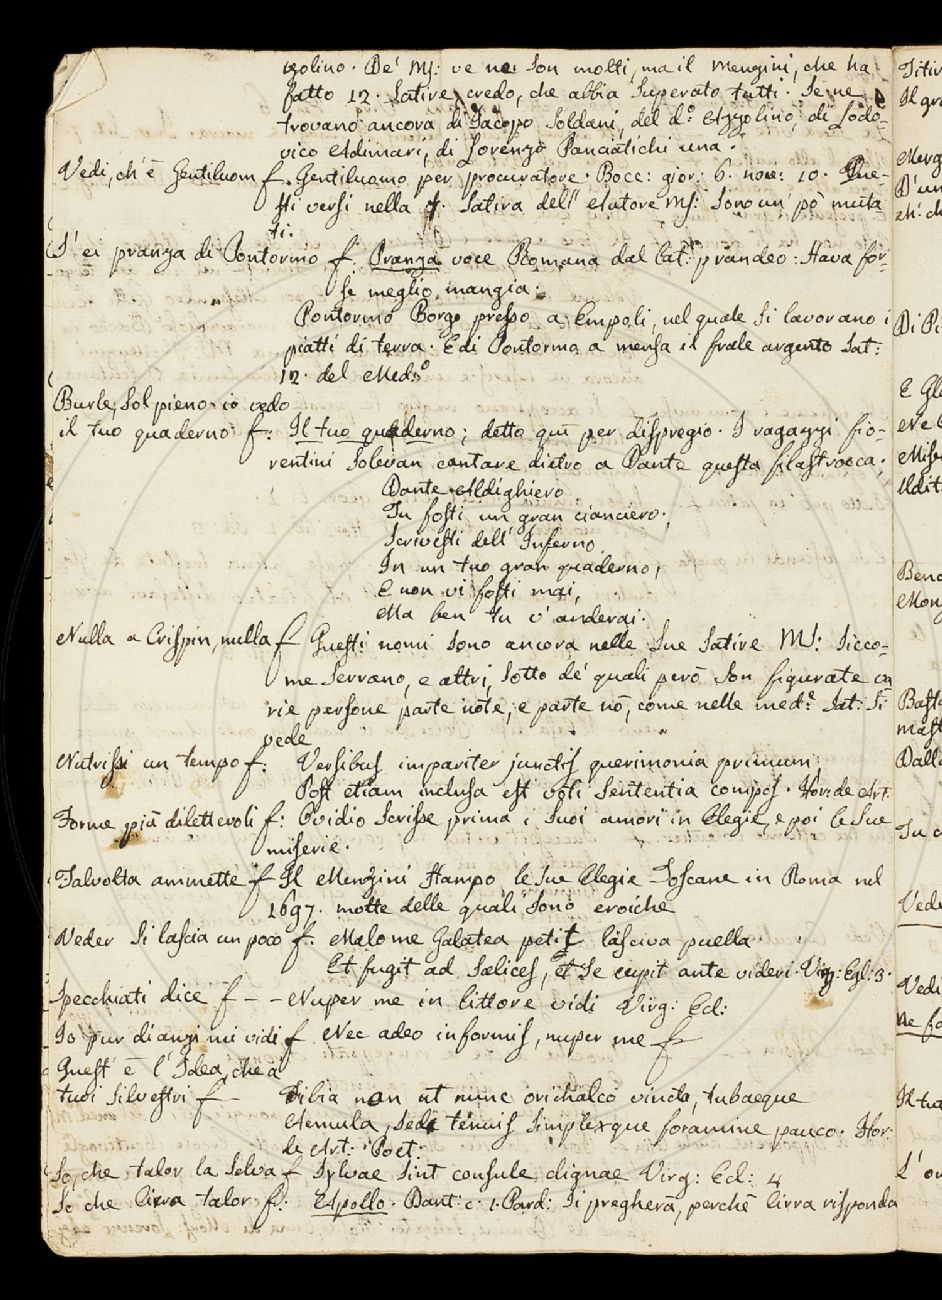 zolino. De' MS: ve ne son molti, ma il Mengini, che ha
fatto 12. Satire, credo, che abbia superato tutti. Se ne
trovano ancora di Jacopo Soldani, del d.º Azzolino, di Lodo-
vico Adimari, di Lorenzo Panciatichi una.
Vedi, ch'è Gentiluom f. Gentiluomo per procuratore. Bocc: gior: 6. nov: 10. Que-
sti versi nella 7. Satira dell' Autore MS: sono un pò muta
ti.
S' ei pranza di Pontormo f. Pranza voce Romana dal Lat: prandeo: Hava for-
se meglio mangia.
Pontormo Borgo presso a Empoli, nel quale si lavorano i
piatti di terra. E di Pontormo a mensa il frale argento Sat:
12. del Med.º
Burle, sol pieno io vedo
il tuo quaderno f: Il tuo quaderno; detto qui per dispregio. I ragazzi fio-
rentini solevan cantare dietro a Dante questa filastrocca:
Dante Aldighiero
Tu fosti un gran cianciero.
Scrivesti dell' Inferno
In un tuo gran quaderno,
E non vi fosti mai,
Ma ben tu v' anderai.
Nulla a Crispin, nulla f Questi nomi sono ancora nelle sue Satire MS: sicco-
me Serrano, e altri, sotto de' quali però son figurate va
rie persone parte note, e parte nò, come nelle med.e Sat: si
vede
Nutrissi un tempo f: Versibus impariter junctis querimonia primum,
Post etiam inclusa est voti sententia compos. Hor: de Art.
Forme più dilettevoli f: Ovidio scrisse prima i suoi amori in Elegie, e poi le sue
miserie.
Talvolta ammette f Il Menzini stampò le sue Elegie Toscane in Roma nel
1697. molte delle quali sono eroiche
Veder si lascia un poco f. Malo me Galatea petit lasciva puella
Et fugit ad Salices, et se cupit ante videri. Virg: Egl: 3.
Specchiati dice f - - Nuper me in littore vidi Virg: Ecl:
Io pur dianzi mi vidi f Nec adeo informis, nuper me f
Quest' è l' Idea, che a
tuoi silvestri f - Tibia non ut nunc orichalco vincta, tubaeque
Aemula, sed tenuis simplexque foramine pauco. Hor:
de Art: Poet:
So, che talor la selva f Sylvae sint consule dignae Virg: Ecl: 4
So che Cirra talor f: Apollo. Dant: c. 1. Pard: Si pregherà, perchè Cirra risponda